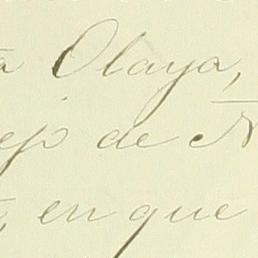 a Olaya,
ej° de
, en que